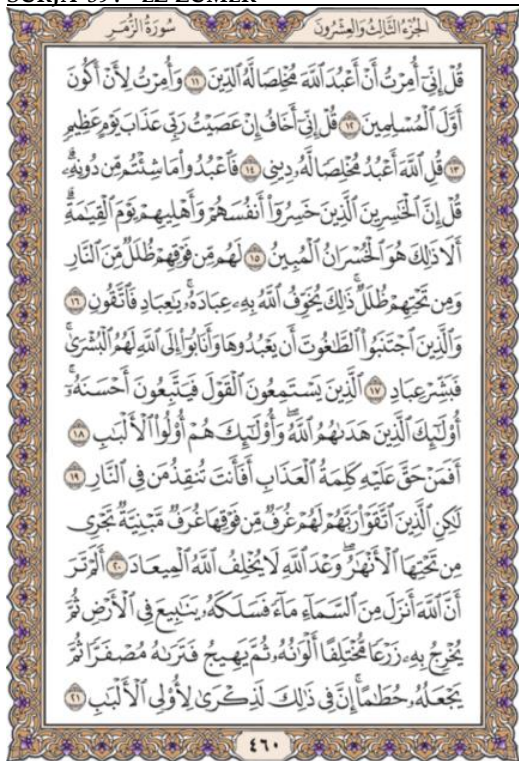 SURJA 39: EZ-ZUMER
سُورَةُ الزُّمَرِ الجُزْءُ الثَّالِثُ وَالعِشْرُونَ
قُلْ إِنِّيٓ أُمِرْتُ أَنْ أَعْبُدَ ٱللَّهَ مُخْلِصًا لَّهُ ٱلدِّينَ ١١ وَأُمِرْتُ لِأَنْ أَكُونَ
أَوَّلَ ٱلْمُسْلِمِينَ ١٢ قُلْ إِنِّيٓ أَخَافُ إِنْ عَصَيْتُ رَبِّي عَذَابَ يَوْمٍ عَظِيمٍ
١٣ قُلِ ٱللَّهَ أَعْبُدُ مُخْلِصًا لَّهُۥ دِينِي ١٤ فَٱعْبُدُوا۟ مَا شِئْتُم مِّن دُونِهِۦۗ
قُلْ إِنَّ ٱلْخَٰسِرِينَ ٱلَّذِينَ خَسِرُوٓا۟ أَنفُسَهُمْ وَأَهْلِيهِمْ يَوْمَ ٱلْقِيَٰمَةِۗ
أَلَا ذَٰلِكَ هُوَ ٱلْخُسْرَانُ ٱلْمُبِينُ ١٥ لَهُم مِّن فَوْقِهِمْ ظُلَلٌ مِّنَ ٱلنَّارِ
وَمِن تَحْتِهِمْ ظُلَلٌۚ ذَٰلِكَ يُخَوِّفُ ٱللَّهُ بِهِۦ عِبَادَهُۥۚ يَٰعِبَادِ فَٱتَّقُونِ ١٦
وَٱلَّذِينَ ٱجْتَنَبُوا۟ ٱلطَّٰغُوتَ أَن يَعْبُدُوهَا وَأَنَابُوٓا۟ إِلَى ٱللَّهِ لَهُمُ ٱلْبُشْرَىٰۚ
فَبَشِّرْ عِبَادِ ١٧ ٱلَّذِينَ يَسْتَمِعُونَ ٱلْقَوْلَ فَيَتَّبِعُونَ أَحْسَنَهُۥٓۚ
أُو۟لَٰٓئِكَ ٱلَّذِينَ هَدَىٰهُمُ ٱللَّهُۖ وَأُو۟لَٰٓئِكَ هُمْ أُو۟لُوا۟ ٱلْأَلْبَٰبِ ١٨
أَفَمَنْ حَقَّ عَلَيْهِ كَلِمَةُ ٱلْعَذَابِ أَفَأَنتَ تُنقِذُ مَن فِي ٱلنَّارِ ١٩
لَٰكِنِ ٱلَّذِينَ ٱتَّقَوْا۟ رَبَّهُمْ لَهُمْ غُرَفٌ مِّن فَوْقِهَا غُرَفٌ مَّبْنِيَّةٌ تَجْرِي
مِن تَحْتِهَا ٱلْأَنْهَٰرُۖ وَعْدَ ٱللَّهِ لَا يُخْلِفُ ٱللَّهُ ٱلْمِيعَادَ ٢٠ أَلَمْ تَرَ
أَنَّ ٱللَّهَ أَنزَلَ مِنَ ٱلسَّمَآءِ مَآءً فَسَلَكَهُۥ يَنَٰبِيعَ فِي ٱلْأَرْضِ ثُمَّ
يُخْرِجُ بِهِۦ زَرْعًا مُّخْتَلِفًا أَلْوَٰنُهُۥ ثُمَّ يَهِيجُ فَتَرَىٰهُ مُصْفَرًّا ثُمَّ
يَجْعَلُهُۥ حُطَٰمًاۚ إِنَّ فِي ذَٰلِكَ لَذِكْرَىٰ لِأُو۟لِي ٱلْأَلْبَٰبِ ٢١
٤٦٠